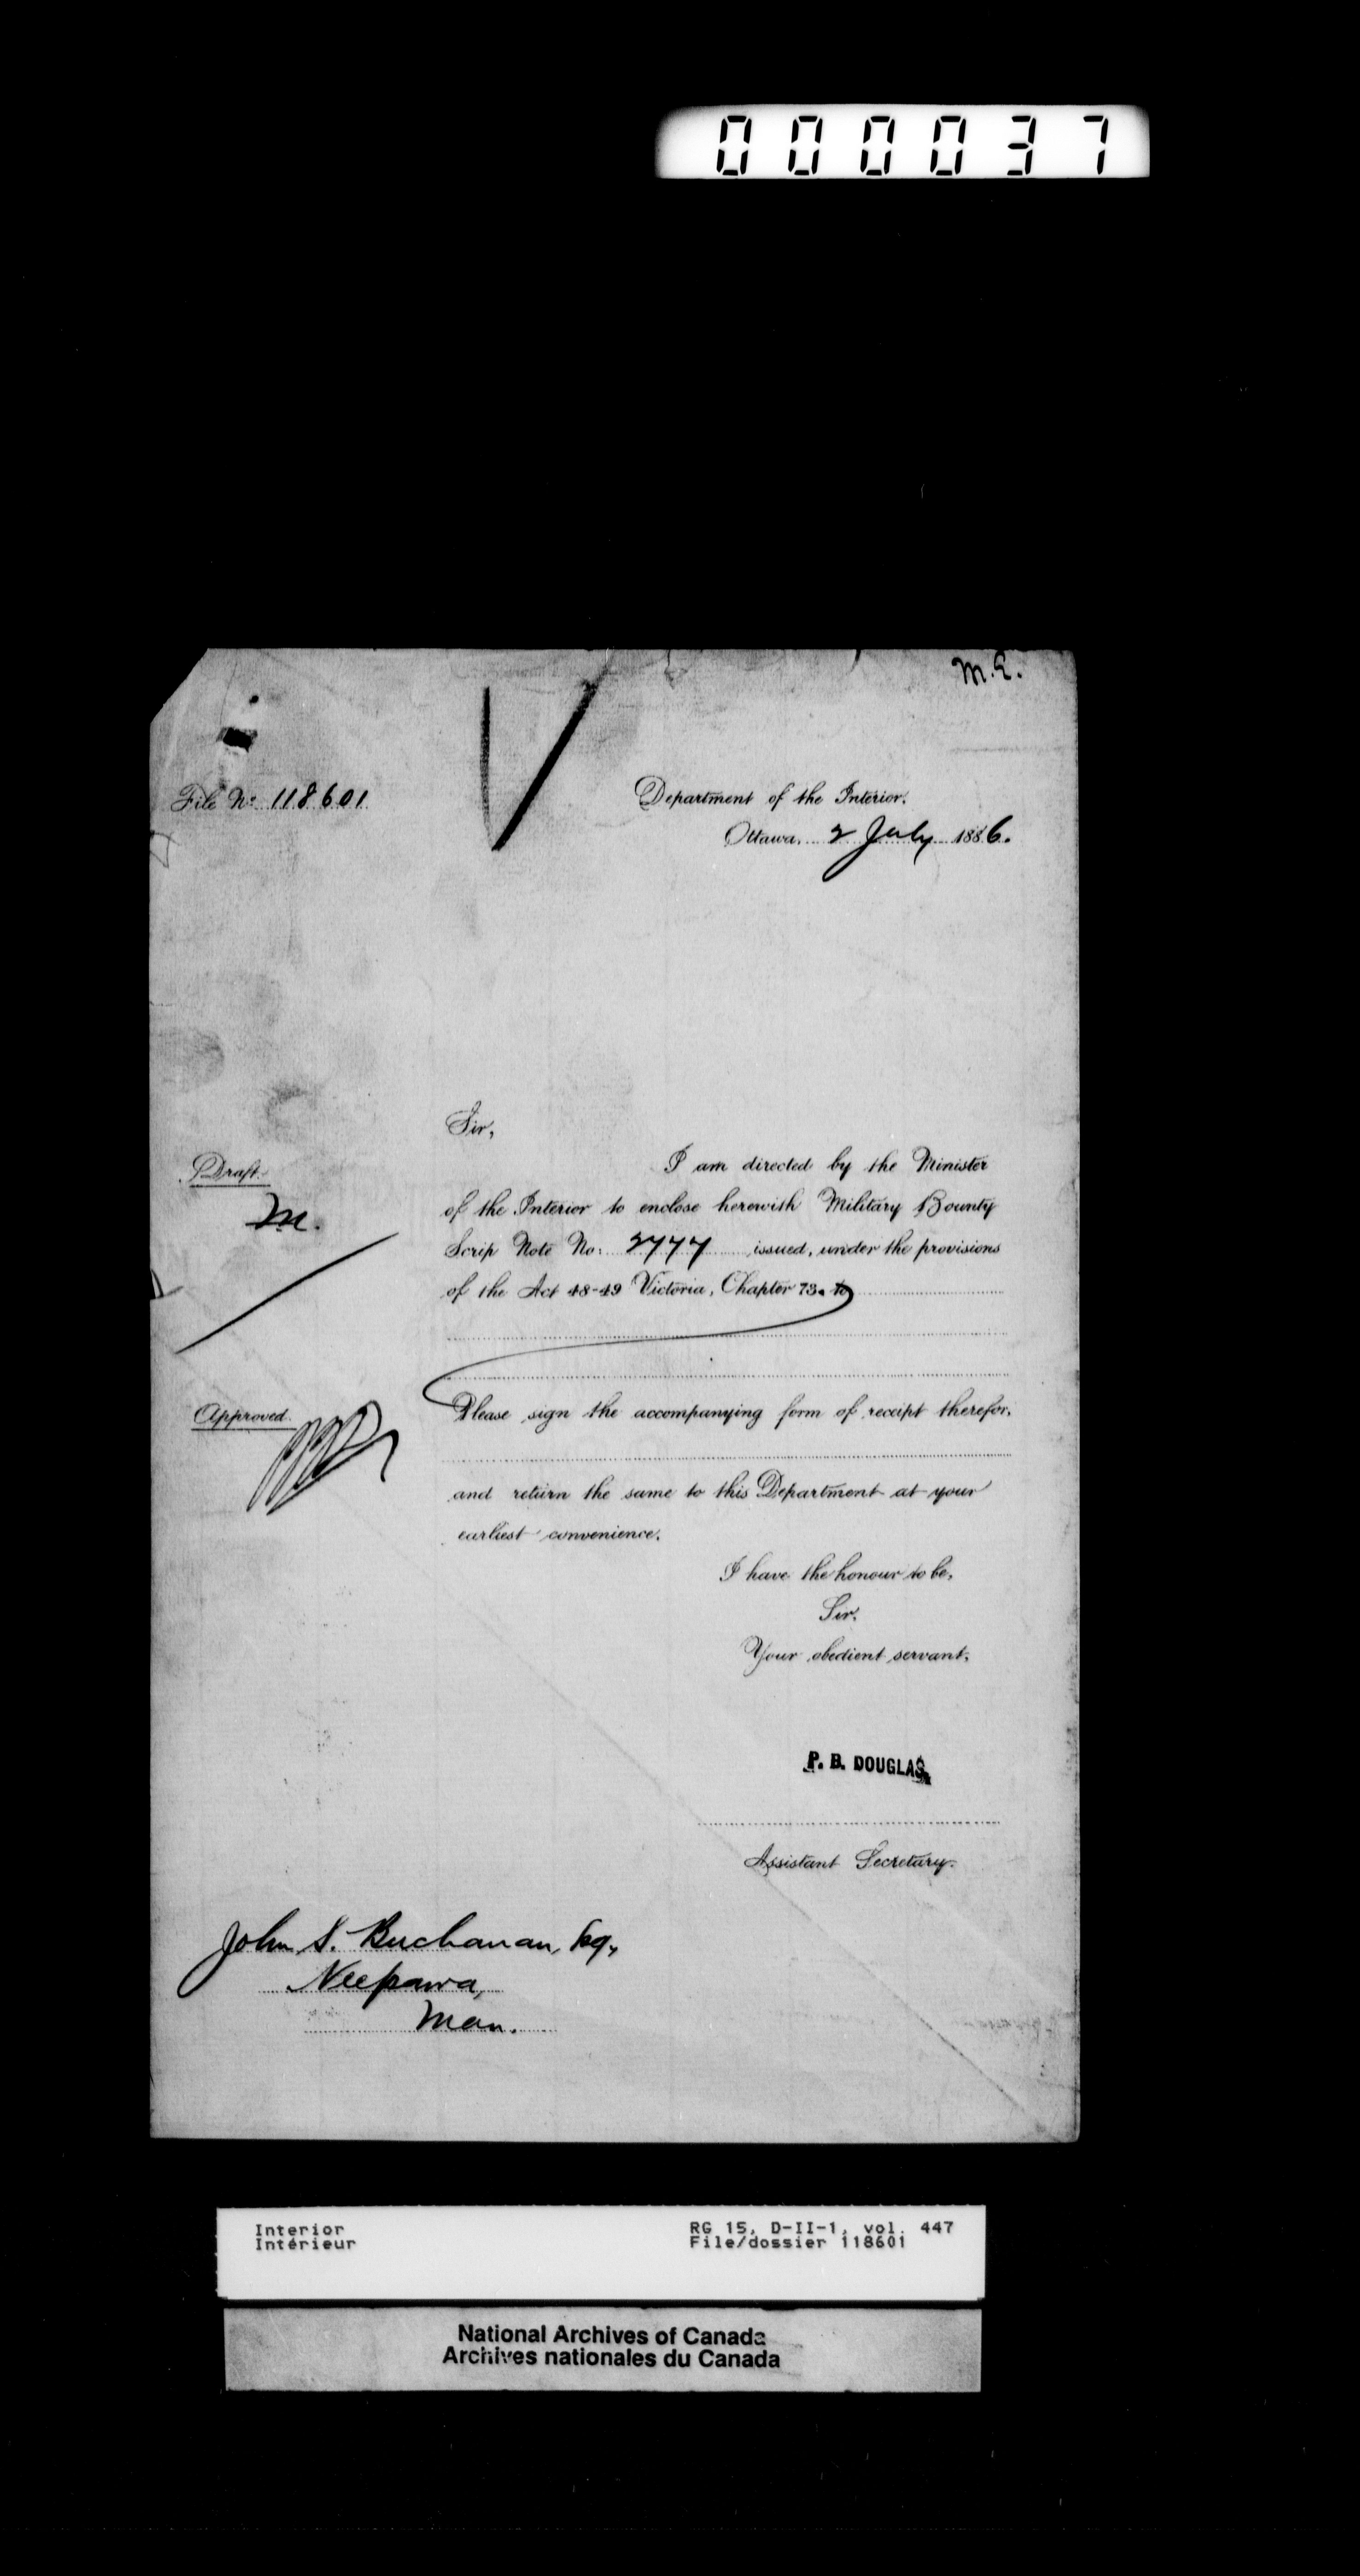 000037
M.E.
File No 118601
Department of the Interior.
Ottawa, 2 July 1886.
Sir,
I am directed by the Minister
Draft.
of the Interior to enclose herewith Military Bounty
M.
Scrip Note No. 2777 issued, under the provisions
of the Act 48-49 Victoria, Chapter 73. to
Approved.
Please sign the accompanying form of receipt therefor,
and return the same to this Department at your
earliest convenience.
I have the honour to be,
Sir,
Your obedient servant,
P. B. DOUGLAS,
Assistant Secretary.
John S. Buchanan, Esq,
Neepawa,
Man.
Interior
Intérieur
RG 15, D-II-1, vol. 447
File/dossier 118601
National Archives of Canada
Archives nationales du Canada